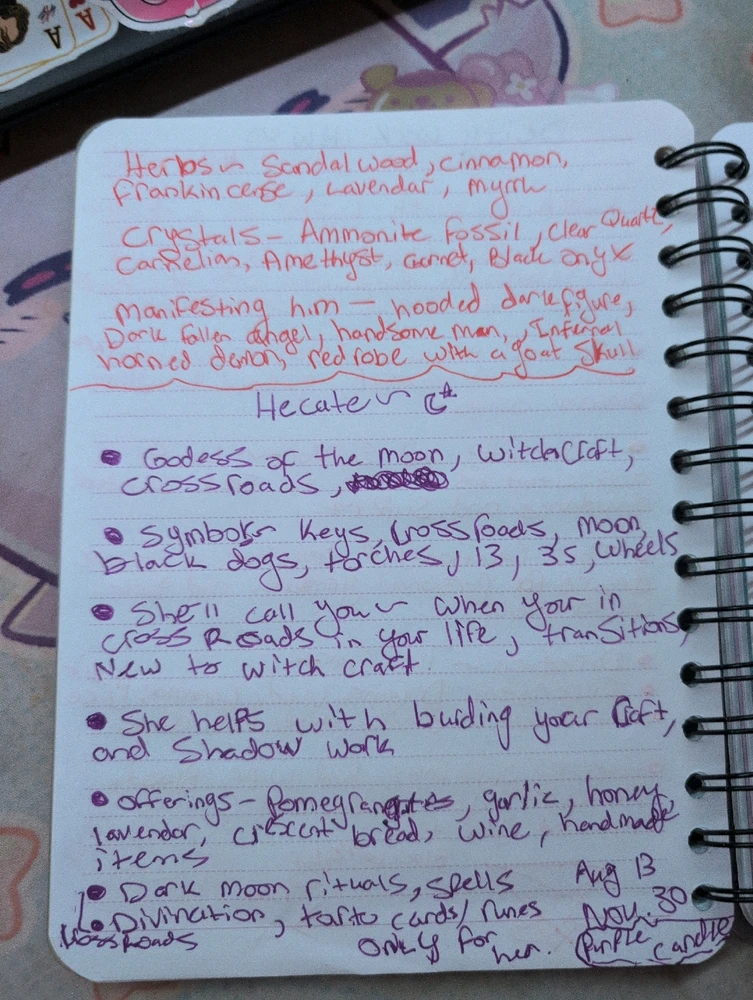 Herbs ~ Sandalwood, cinnamon,
Frankincense, Lavendar, myrrh
Crystals - Ammonite fossil, clear Quartz,
Carnelian, Amethyst, Garnet, Black onyx
manifesting him - hooded dark figure,
Dark fallen angel, handsome man, Infernal
horned demon, red robe with a goat skull
Hecate ~
• Godess of the moon, witchcraft,
crossroads,
• Symbols ~ Keys, crossroads, moon,
black dogs, torches, 13, 3s, wheels
• She'll call you ~ when your in
cross Roads in your life, transitions,
New to witch craft.
• She helps with buiding your craft,
and Shadow work
• offerings - Pomegranates, garlic, honey,
lavendar, crescent bread, wine, handmade
items
• Dark moon rituals, spells Aug 13
• Divination, tarto cards/runes Nov. 30
Cross Roads only for her. Purple candle
A
A